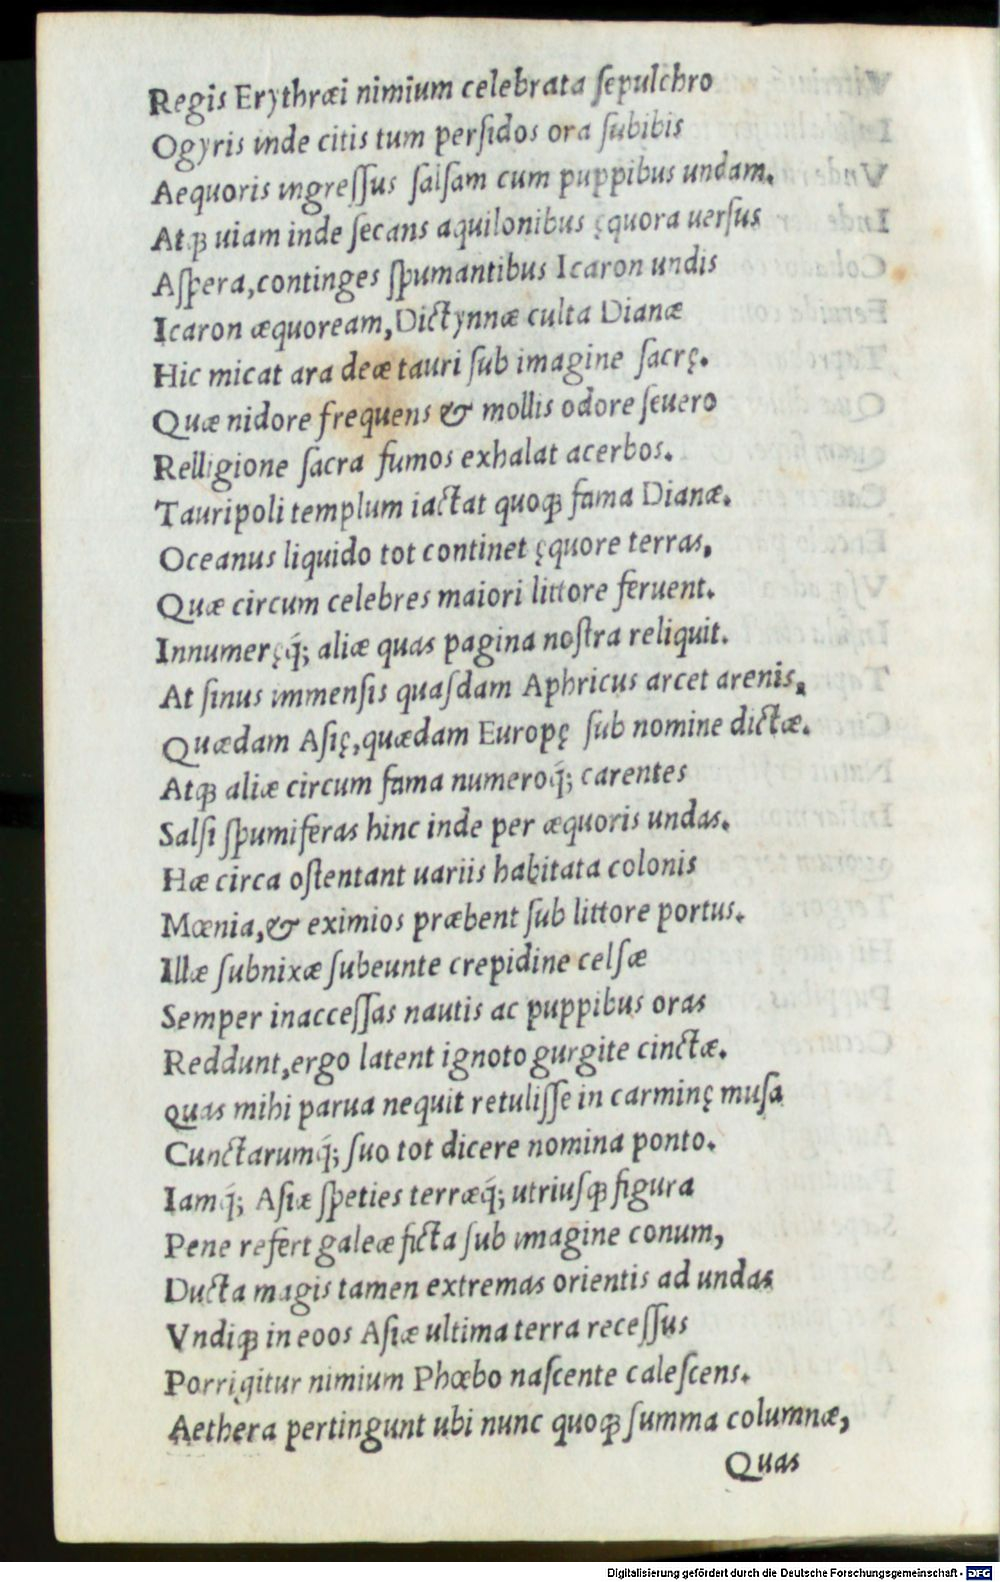 Regis Erythræi nimium celebrata ſepulchro
Ogyris inde citis tum perſidos ora ſubibis
Aequoris ingreſſus ſalſam cum puppibus undam.
Atq̃ uiam inde ſecans aquilonibus ęquora uerſus
Aſpera, continges ſpumantibus Icaron undis
Icaron æquoream, Dictynnæ culta Dianæ
Hic micat ara deæ tauri ſub imagine ſacrę.
Quæ nidore frequens & mollis odore ſeuero
Relligione ſacra fumos exhalat acerbos.
Tauripoli templum iactat quoq̃ fama Dianæ.
Oceanus liquido tot continet ęquore terras,
Quæ circum celebres maiori littore feruent.
Innumeręq́; aliæ quas pagina noſtra reliquit.
At ſinus immenſis quaſdam Aphricus arcet arenis,
Quædam Aſię, quædam Europę ſub nomine dictæ.
Atq̃ aliæ circum fama numeroq́; carentes
Salſi ſpumiferas hinc inde per æquoris undas.
Hæ circa oſtentant uariis habitata colonis
Mœnia, & eximios præbent ſub littore portus.
Illæ ſubnixæ ſubeunte crepidine celſæ
Semper inacceſſas nautis ac puppibus oras
Reddunt, ergo latent ignoto gurgite cinctæ.
quas mihi parua nequit retuliſſe in carminę muſa
Cunctarumq́; ſuo tot dicere nomina ponto.
Iamq́; Aſiæ ſpeties terræq́; utriuſq̃ figura
Pene refert galeæ ficta ſub imagine conum,
Ducta magis tamen extremas orientis ad undas
Vndiq̃ in eoos Aſiæ ultima terra receſſus
Porrigitur nimium Phœbo naſcente caleſcens.
Aethera pertingunt ubi nunc quoq̃ ſumma columnæ,
Quas
Digitalisierung gefördert durch die Deutsche Forschungsgemeinschaft - DFG